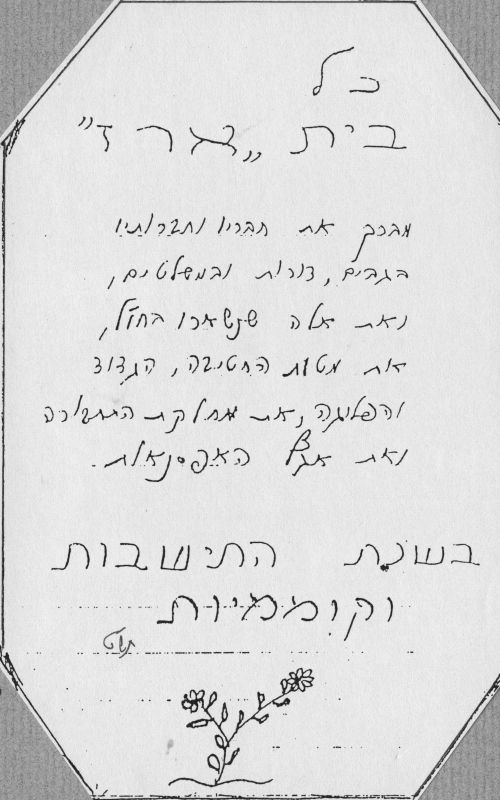 כל
בית „ארז"
מברך את חבריו וחברותיו
בגבים, דורות ובמשלטים,
ואת אלה שנשארו בחו"ל,
את מטות החטיבה, הגדוד
והפלוגה, ואת מחלקת התחבורה
ואת האפסנאות.
בשנת התישבות
וקוממיות
תש"ט